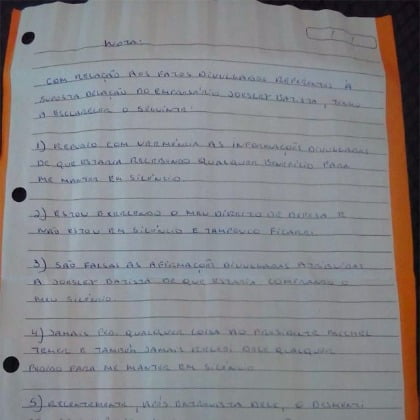 NOTA:
COM RELAÇÃO AOS FATOS DIVULGADOS REFERENTES À
SUPOSTA DELAÇÃO DO EMPRESÁRIO JOESLEY BATISTA, TENHO
A ESCLARECER O SEGUINTE:
1) REPUDIO COM VEEMÊNCIA AS INFORMAÇÕES DIVULGADAS
DE QUE ESTARIA RECEBENDO QUALQUER BENEFÍCIO PARA
ME MANTER EM SILÊNCIO
2) ESTOU EXERCENDO O MEU DIREITO DE DEFESA E
NÃO ESTOU EM SILÊNCIO E TAMPOUCO FICAREI.
3) SÃO FALSAS AS AFIRMAÇÕES DIVULGADAS ATRIBUIDAS
A JOESLEY BATISTA DE QUE ESTARIA COMPRANDO O
MEU SILÊNCIO.
4) JAMAIS PEDI QUALQUER COISA AO PRESIDENTE MICHEL
TEMER E TAMBÉM JAMAIS RECEBI DELE QUALQUER
PEDIDO PARA ME MANTER EM SILÊNCIO
5) RECENTEMENTE, APÓS ENTREVISTA DELE, O DESMENTI